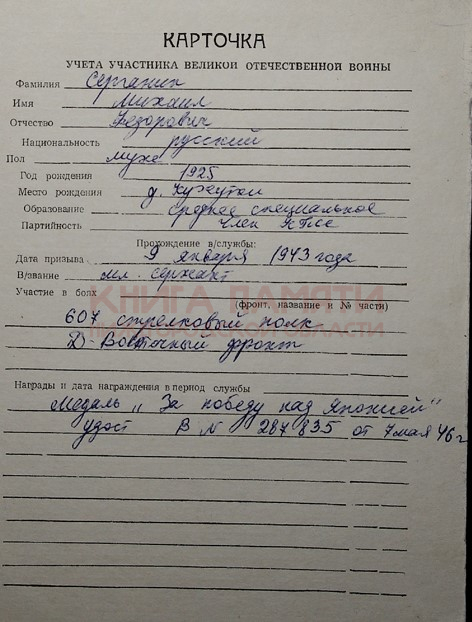 КАРТОЧКА
УЧЕТА УЧАСТНИКА ВЕЛИКОЙ ОТЕЧЕСТВЕННОЙ ВОЙНЫ
Фамилия Серганин
Имя Михаил
Отчество Федорович
Национальность русский
Пол муж
Год рождения 1925
Место рождения д.
Образование среднее специальное
Партийность Член КПСС
Прохождение в/службы:
Дата призыва 9 января 1943 года
В/звание мл. сержант
Участие в боях
КНИГА ПАМЯТИ
(фронт, название и № части)
607 стрелковый полк
ОБЛАСТИ
Д-Восточный фронт
Награды и дата награждения в период службы
Медаль "За победу над Японией"
удост В N 287835 от 7 мая 46 г